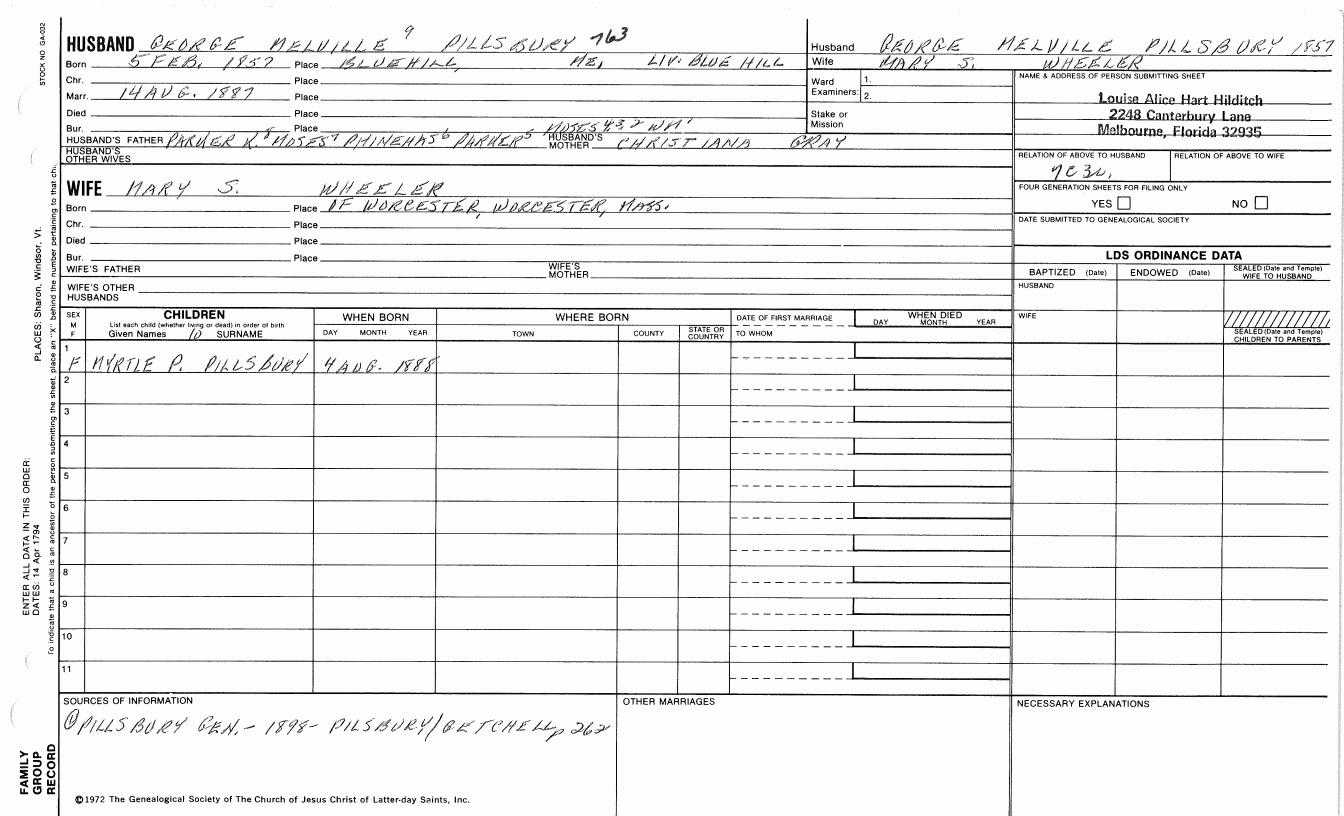 STOCK NO GA-032
HUSBAND GEORGE MELVILLE 9 PILLSBURY 763
Born 5 FEB. 1857 Place BLUEHILL, ME, LIV. BLUE HILL
Chr. Place
Marr. 14 AUG. 1887 Place
Died Place
Bur. Place MOSES 4,3,2 WM 1
HUSBAND'S FATHER PARKER K. 8 MOSES 7 PHINEHAS 6 PARKER 5 HUSBAND'S MOTHER CHRISTIANA GRAY
HUSBAND'S OTHER WIVES
Husband GEORGE MELVILLE PILLSBURY 1857
Wife MARY S. WHEELER
Ward Examiners: 1. 2.
Stake or Mission
NAME & ADDRESS OF PERSON SUBMITTING SHEET
Louise Alice Hart Hilditch
2248 Canterbury Lane
Melbourne, Florida 32935
RELATION OF ABOVE TO HUSBAND RELATION OF ABOVE TO WIFE
7C3R,
FOUR GENERATION SHEETS FOR FILING ONLY
YES NO
DATE SUBMITTED TO GENEALOGICAL SOCIETY
WIFE MARY S. WHEELER
Born Place OF WORCESTER, WORCESTER, MASS.
Chr. Place
Died Place
Bur. Place
WIFE'S FATHER WIFE'S MOTHER
WIFE'S OTHER HUSBANDS
LDS ORDINANCE DATA
BAPTIZED (Date) ENDOWED (Date) SEALED (Date and Temple) WIFE TO HUSBAND
HUSBAND
WIFE
SEALED (Date and Temple) CHILDREN TO PARENTS
SEX M F
CHILDREN
List each child (whether living or dead) in order of birth
Given Names 10 SURNAME
WHEN BORN
DAY MONTH YEAR
WHERE BORN
TOWN COUNTY STATE OR COUNTRY
DATE OF FIRST MARRIAGE
TO WHOM
WHEN DIED
DAY MONTH YEAR
1
F MYRTLE P. PILLSBURY 4 AUG. 1888
2
3
4
5
6
7
8
9
10
11
SOURCES OF INFORMATION
① PILLSBURY GEN. - 1898 - PILSBURY/GETCHELL, p 262
OTHER MARRIAGES
NECESSARY EXPLANATIONS
©1972 The Genealogical Society of The Church of Jesus Christ of Latter-day Saints, Inc.
FAMILY GROUP RECORD
ENTER ALL DATA IN THIS ORDER:
DATES: 14 Apr 1794
PLACES: Sharon, Windsor, Vt.
To indicate that a child is an ancestor of the person submitting the sheet, place an "X" behind the number pertaining to that